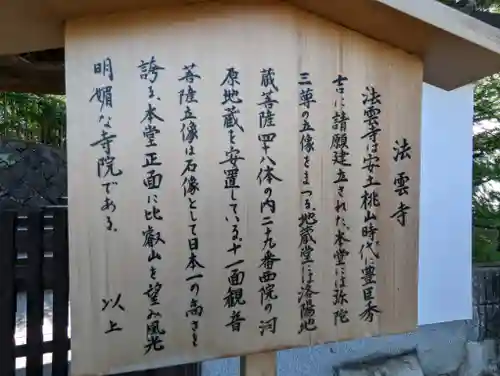 法雲寺
法雲寺は安土桃山時代に豊臣秀
吉に請願建立された、本堂には弥陀
三尊の立像をまつる、地蔵堂には洛陽地
蔵菩薩四十八体の内二十九番西院の河
原地蔵を安置している。十一面観音
菩薩立像は石像として日本一の高さを
誇る、本堂正面に比叡山を望み風光
明媚な寺院である。
以上